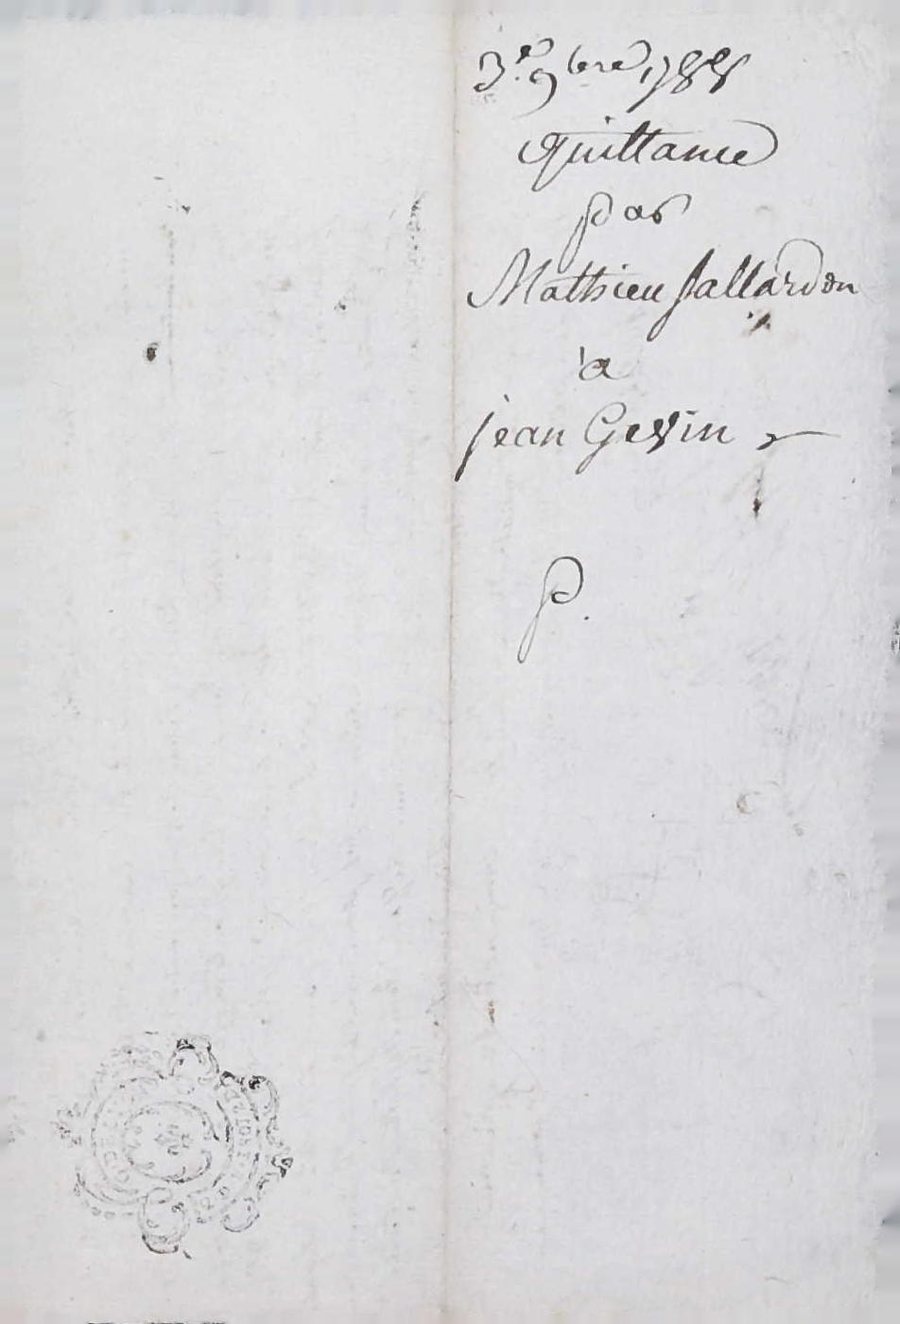 3e. 9bre 1788
Quittance
par
Mathieu Jallardon
à
jean Gevin
P.